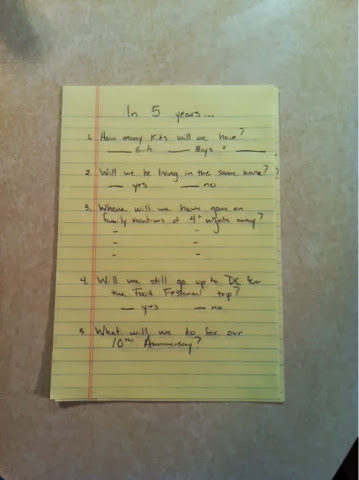 In 5 years...
1. How many kids will we have?
___ Girls ___ Boys = ___
2. Will we be living in the same house?
__ yes __ no
3. Where will we have gone on
family vacations of 4+ nights away?
- -
- -
- -
4. Will we still go up to DC for
the Food trip?
__ yes __ no
5. What will we do for our
10th Anniversary?